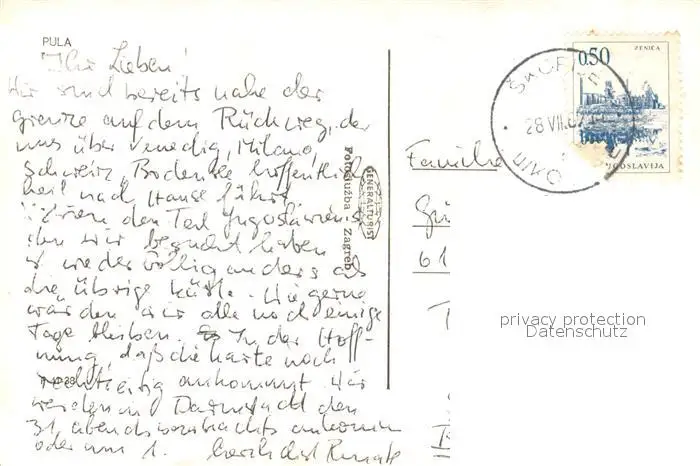 PULA
Ihr Lieben!
Wir sind bereits nahe der
Grenze auf dem Rückweg, der
uns über Venedig, Milano,
Schweiz, Bodensee hoffentlich
heil nach Hause führt.
den Teil Jugoslawiens
den wir besucht haben
ist wieder völlig anders als
die übrige Küste. Wie gerne
würden wir alle noch einige
Tage bleiben. In der Hoff-
nung, daß die Karte noch
rechtzeitig ankommt. Wir
werden in Darmstadt den
31. abends ankommen
oder am 1. Herzlichst Renate
GENERALTURIST
Fotoslužba Zagreb
ZENICA
0,50
JUGOSLAVIJA
ŠKOFIJE
28 VII.
Familie
61
privacy protection
Datenschutz